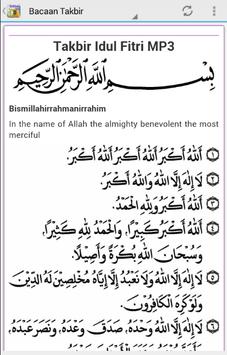 Bacaan Takbir
Takbir Idul Fitri MP3
بِسْمِ اللَّهِ الرَّحْمَٰنِ الرَّحِيمِ
Bismillahirrahmanirrahim
In the name of Allah the almighty benevolent the most
merciful
١ اَللّٰهُ أَكْبَرُ اَللّٰهُ أَكْبَرُ اَللّٰهُ أَكْبَرُ.
٢ لَا إِلٰهَ إِلَّا اللّٰهُ وَاللّٰهُ أَكْبَرُ.
٣ اَللّٰهُ أَكْبَرُ وَلِلّٰهِ الْحَمْدُ.
٤ اَللّٰهُ أَكْبَرُ كَبِيْرًا، وَالْحَمْدُ لِلّٰهِ كَثِيْرًا،
وَسُبْحَانَ اللّٰهِ بُكْرَةً وَأَصِيْلًا.
٥ لَا إِلٰهَ إِلَّا اللّٰهُ وَلَا نَعْبُدُ إِلَّا إِيَّاهُ مُخْلِصِيْنَ لَهُ الدِّيْنَ
وَلَوْ كَرِهَ الْكَافِرُوْنَ.
٦ لَا إِلٰهَ إِلَّا اللّٰهُ وَحْدَهُ، صَدَقَ وَعْدَهُ، وَنَصَرَ عَبْدَهُ،